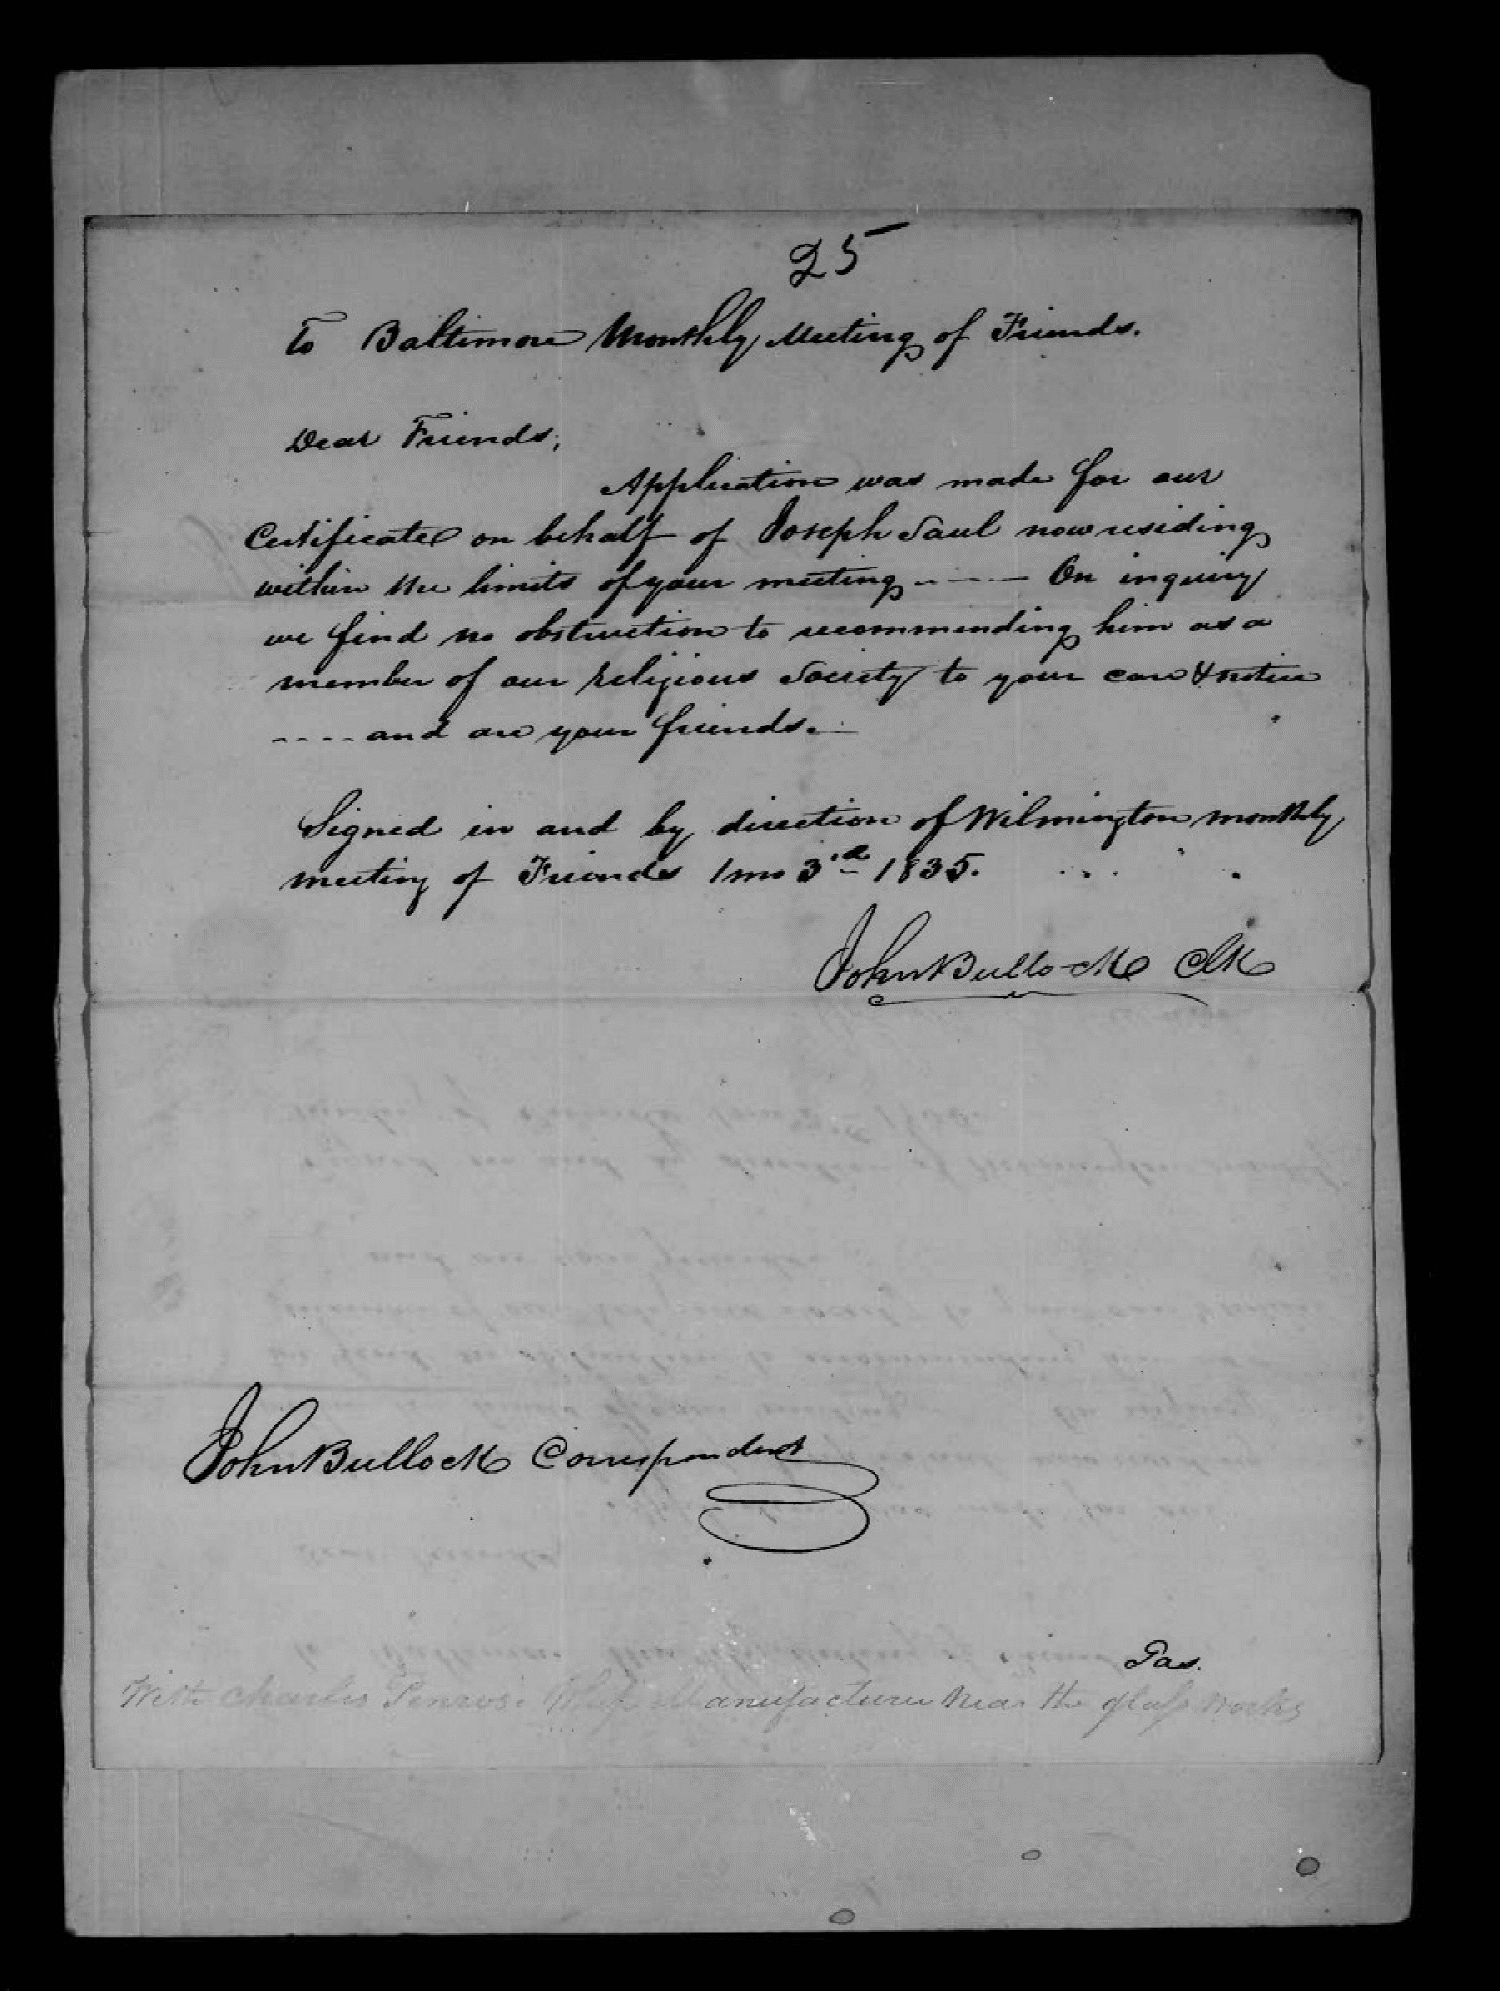 25
To Baltimore Monthly Meeting of Friends.
Dear Friends;
Application was made for our
Certificate on behalf of Joseph Saul now residing
within the limits of your meeting.---- On inquiry
we find no obstruction to recommending him as a
member of our religious Society to your care & notice
---- and are your friends.-
Signed in and by direction of Wilmington monthly
meeting of Friends 1mo 3rd 1835.
John Bullock Clk
John Bullock Correspondent
Gas.
With Charles Penrose Manufacturer Near the glass works